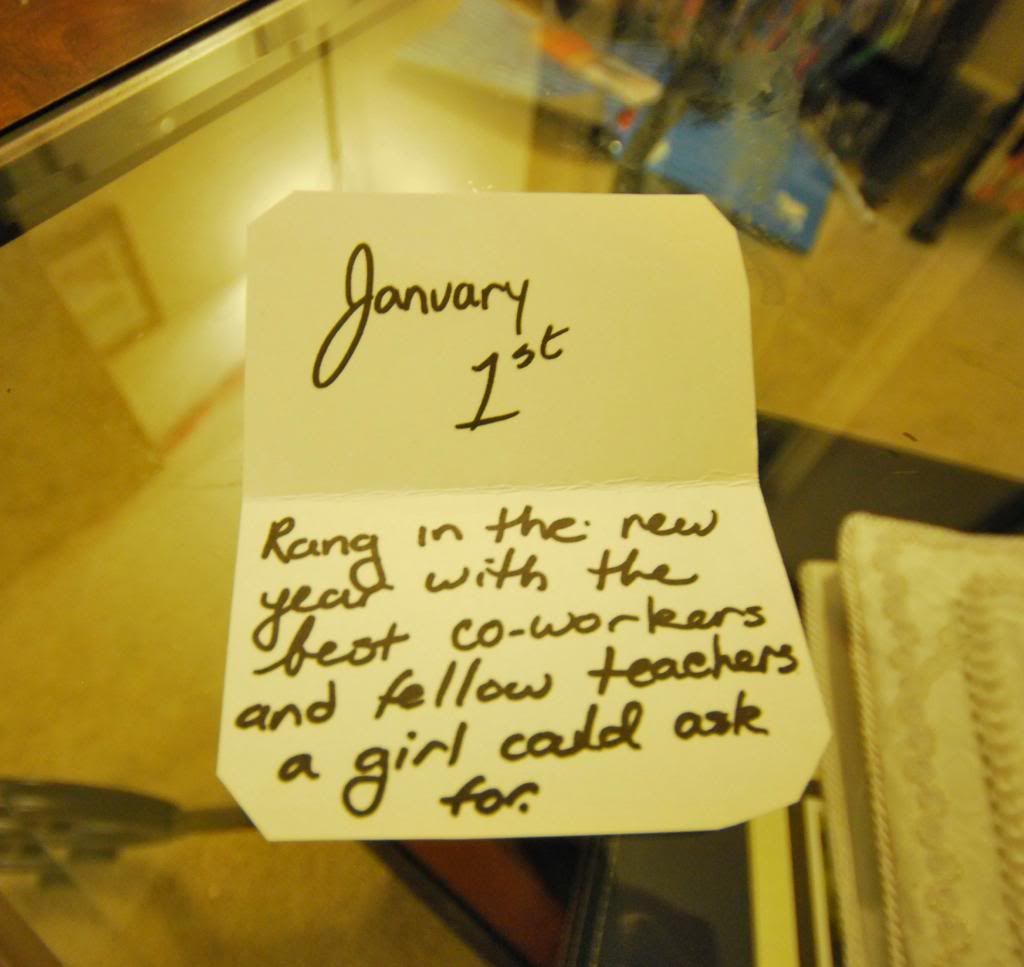 January
1st
Rang in the new
year with the
best co-workers
and fellow teachers
a girl could ask
for.